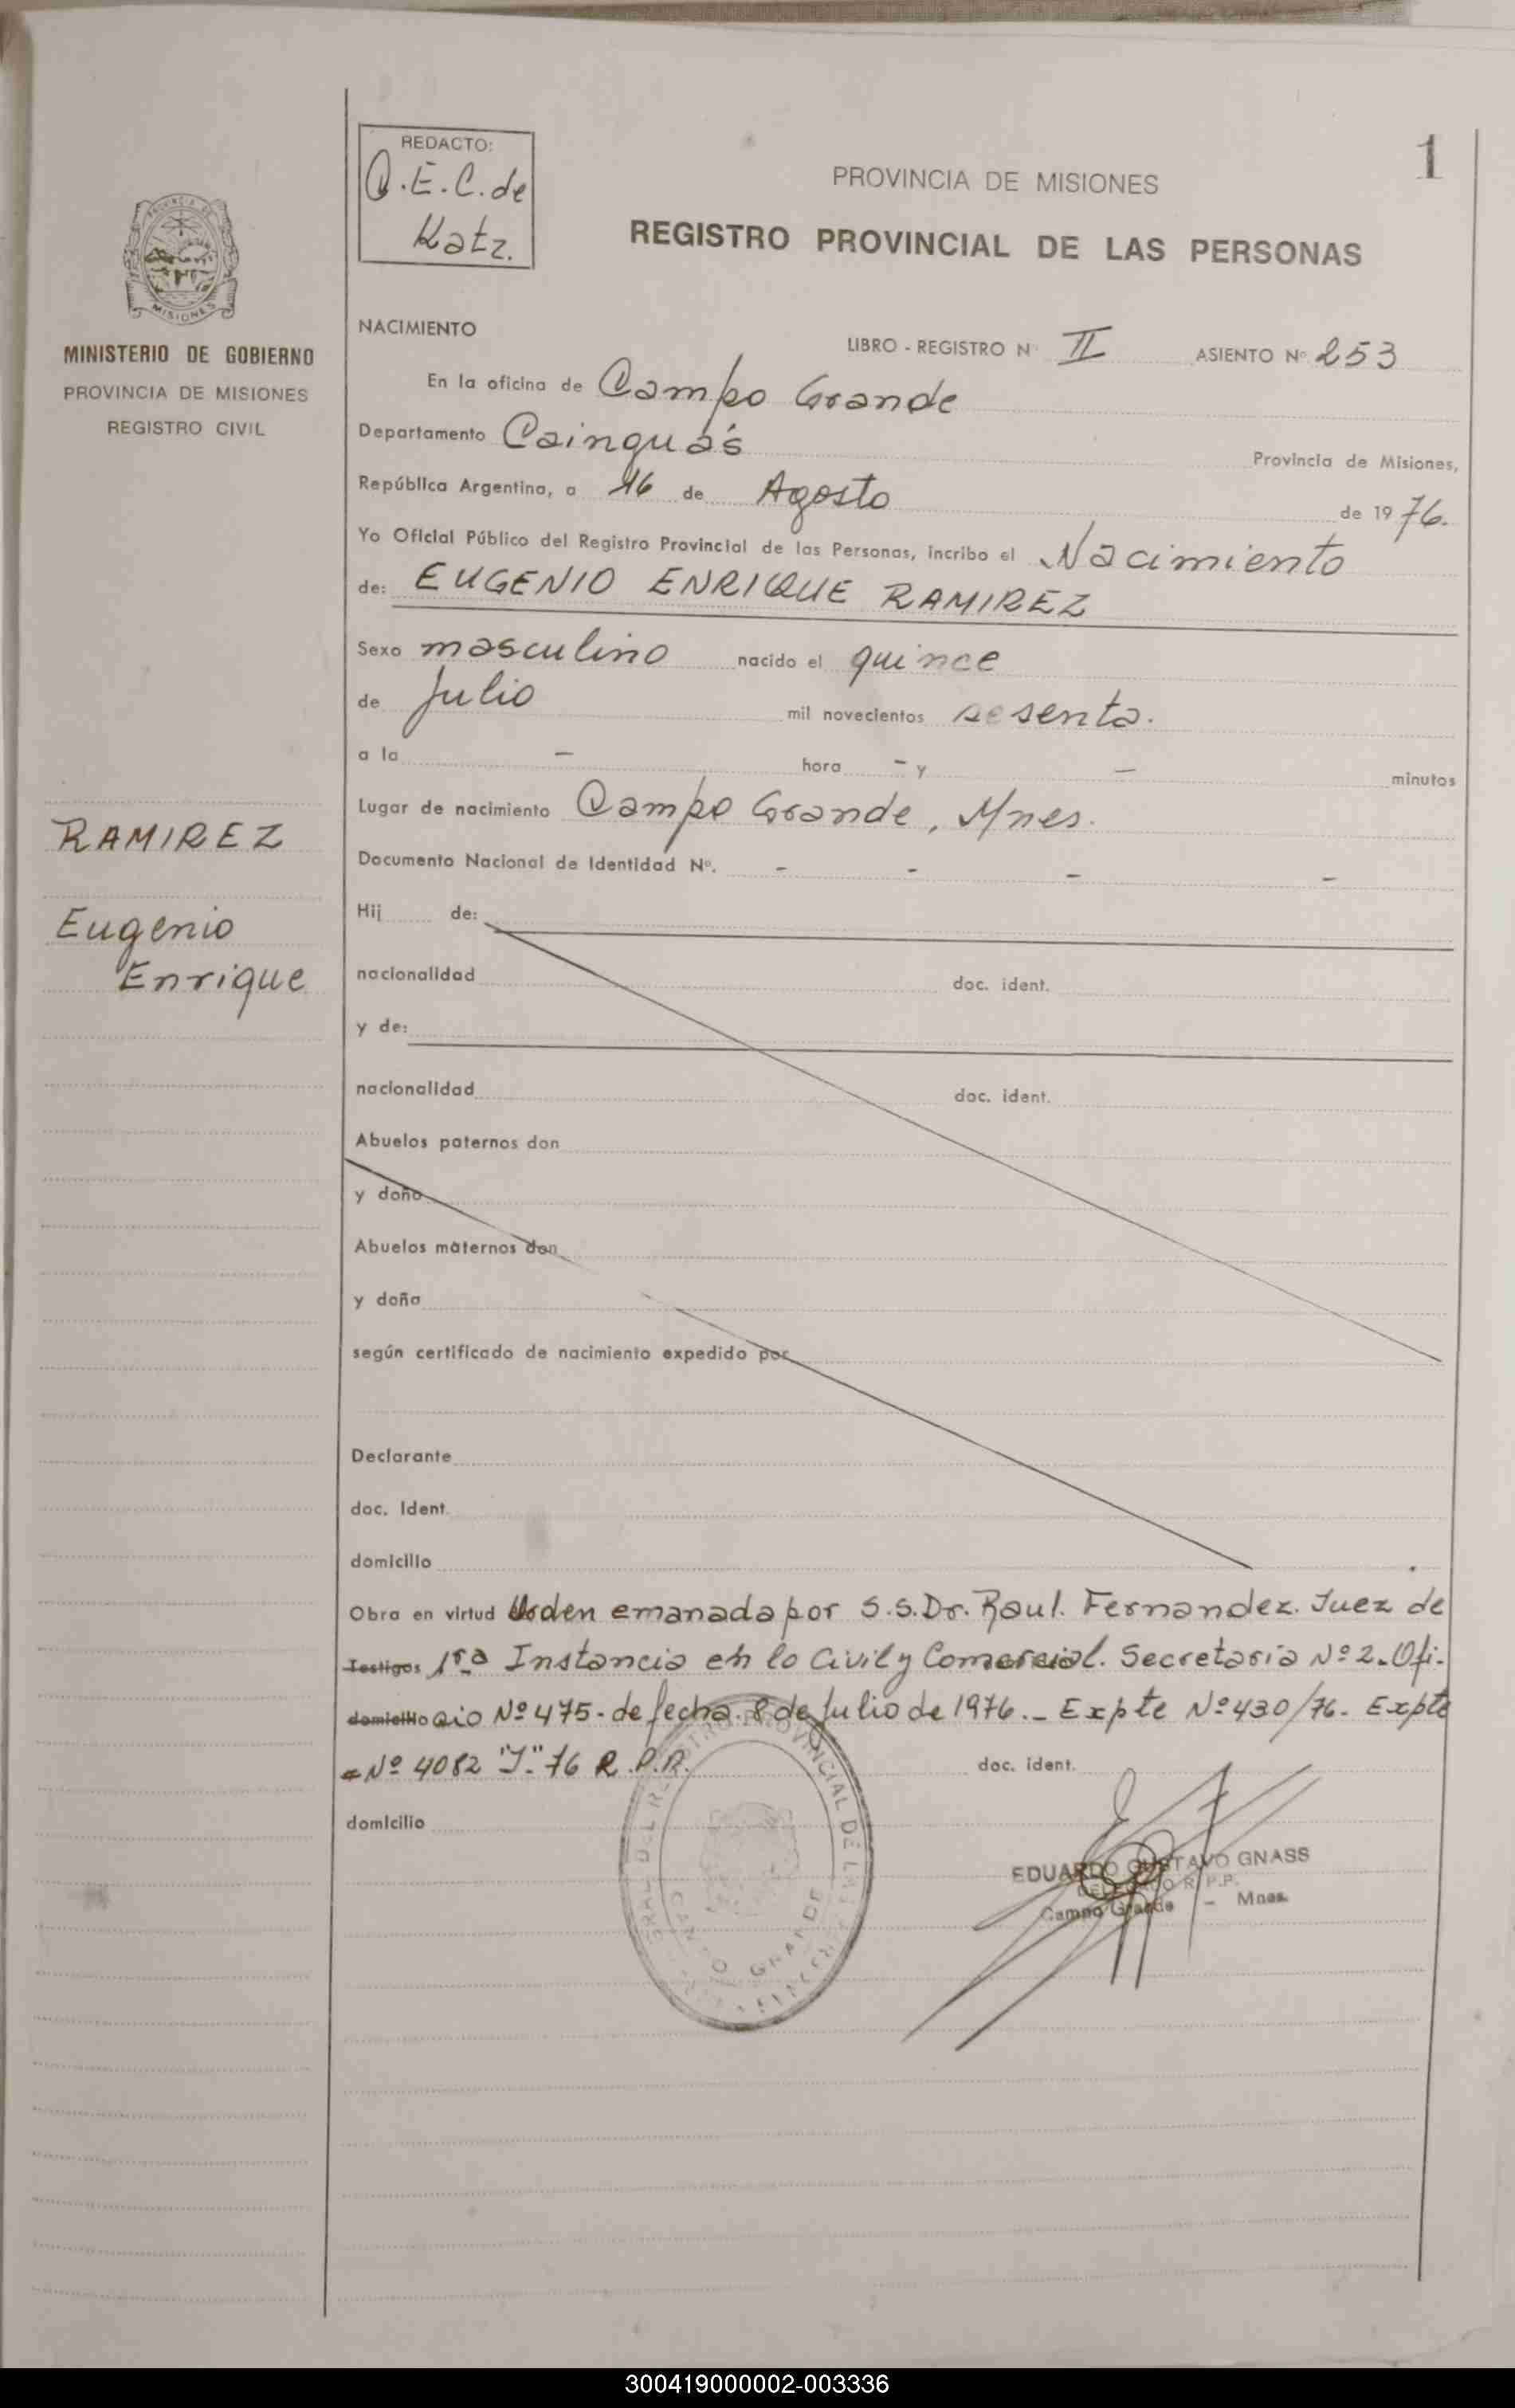 1
REDACTO:
Q.E.C. de
Katz.
PROVINCIA DE MISIONES
REGISTRO PROVINCIAL DE LAS PERSONAS
MISIONES
MINISTERIO DE GOBIERNO
PROVINCIA DE MISIONES
REGISTRO CIVIL
NACIMIENTO
LIBRO - REGISTRO Nº II ASIENTO Nº 253
En la oficina de Campo Grande
Departamento Cainguás Provincia de Misiones,
República Argentina, a 16 de Agosto de 19 76.
Yo Oficial Público del Registro Provincial de las Personas, incribo el Nacimiento
de: EUGENIO ENRIQUE RAMIREZ
Sexo masculino nacido el quince
de Julio mil novecientos sesenta.
a la - hora - y - minutos
Lugar de nacimiento Campo Grande, Mnes.
RAMIREZ
Documento Nacional de Identidad Nº. - - - -
Hij de:
Eugenio
Enrique
nacionalidad doc. ident.
y de:
nacionalidad doc. ident.
Abuelos paternos don
y doña
Abuelos maternos don
y doña
según certificado de nacimiento expedido por
Declarante
doc. Ident.
domicilio
Obra en virtud Orden emanada por S.S. Dr. Raul. Fernandez. Juez de
Testigos 1ra Instancia en lo Civil y Comercial. Secretaria Nº 2. Ofi-
domicilio cio Nº 475- de fecha 8 de Julio de 1976.- Expte Nº 430/76- Expte
Nº 4082 "J"- 76 R.P.P. doc. ident.
domicilio
EDUARDO GUSTAVO GNASS
DELEGADO R.P.P.
Campo Grande - Mnes.
CAMPO GRANDE
300419000002-003336